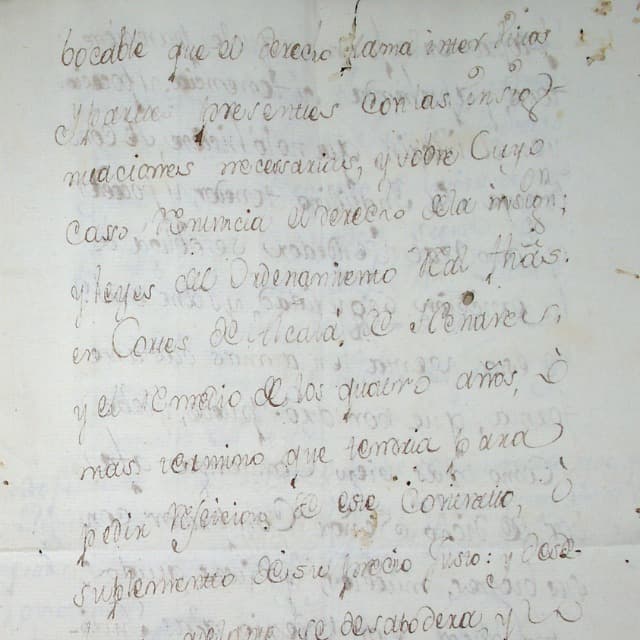 bocable que el derecho llama inter vivos
y partes presentes con las insig
nuaciones necesarias, y sobre cuyo
casso renuncia el derecho de la insignon,
y leyes del ordenamiento Real fhas.
en Cortes de Alcalá, de Henares,
y el remedio de los quatro años, ò
mas termino que tendria para
pedir resicion de este Contratto, ò
suplemento de su precio justo: y desde
se desapodera y